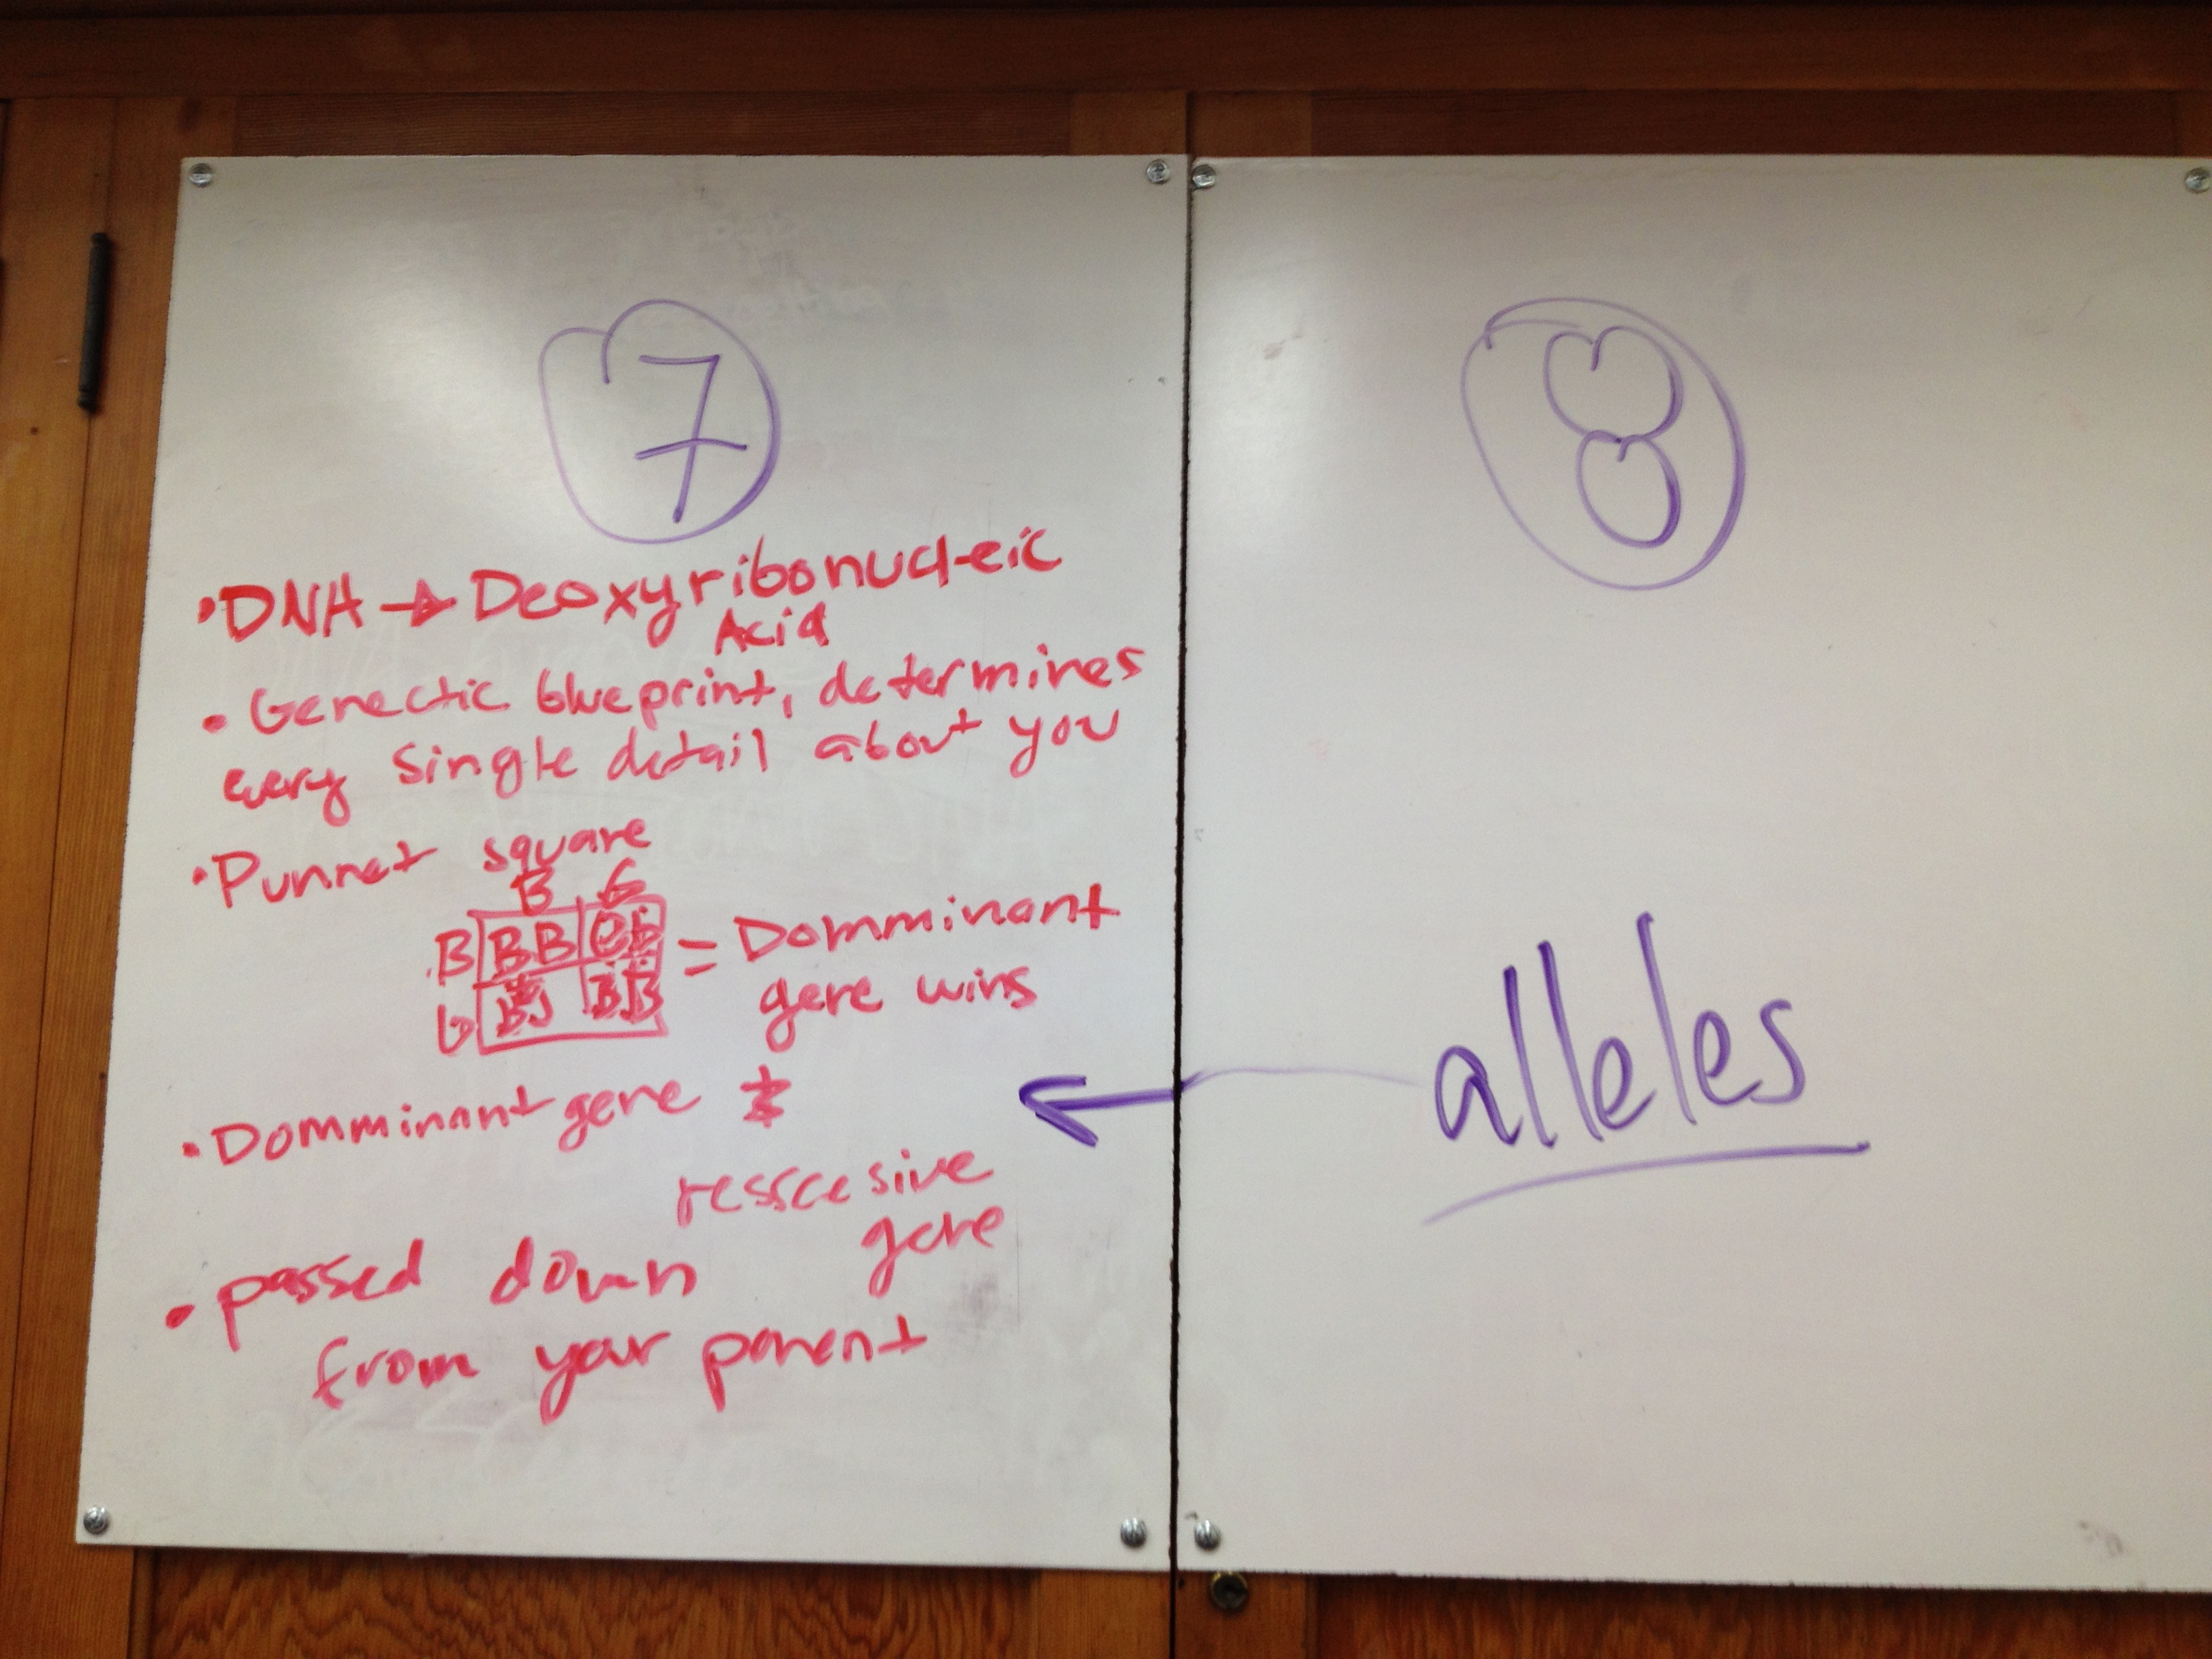 7
• DNA → Deoxyribonucleic
Acid
• Genectic blueprint, determines
every single detail about you
• Punnet square
B
B BB
= Domminant
gene wins
• Domminant gene &
resscesive
gene
• passed down
from your parent
8
alleles